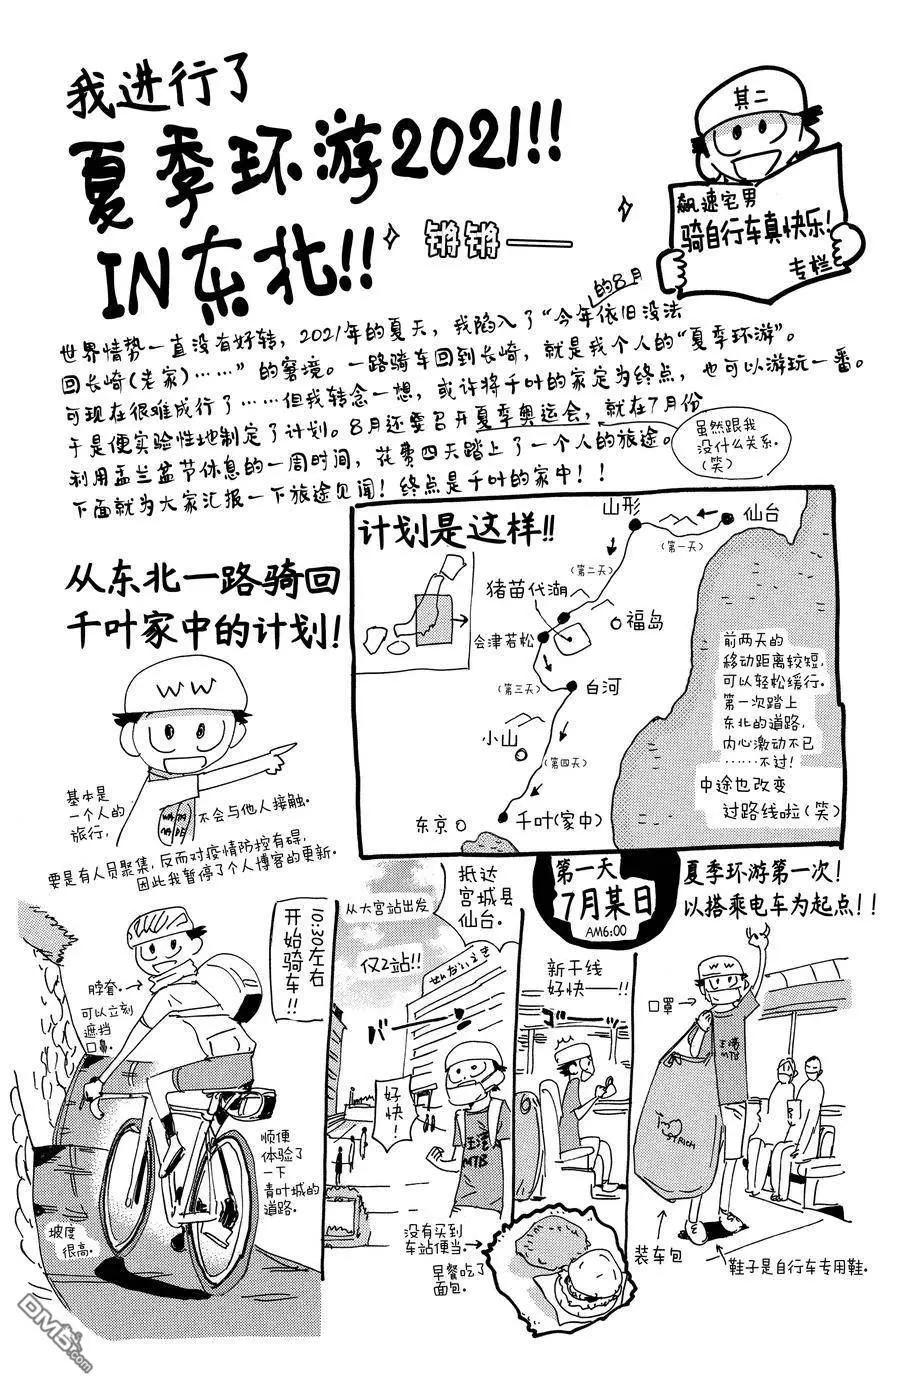 我进行了
夏季环游2021!!
IN东北!!
锵锵——
其二
飙速宅男
骑自行车真快乐!
专栏
世界情势一直没有好转，2021年的夏天，我陷入了“今年的8月依旧没法
回长崎(老家)……”的窘境。一路骑车回到长崎，就是我个人的“夏季环游”。
可现在很难成行了……但我转念一想，或许将千叶的家定为终点，也可以游玩一番。
于是便实验性地制定了计划。8月还要召开夏季奥运会，就在7月份
利用盂兰盆节休息的一周时间，花费四天踏上了一个人的旅途。
下面就为大家汇报一下旅途见闻！终点是千叶的家中！！
虽然跟我
没什么关系.
(笑)
从东北一路骑回
千叶家中的计划!
WW
基本是
一个人的
旅行,
不会与他人接触.
要是有人员聚集, 反而对疫情防控有碍,
因此我暂停了个人博客的更新.
计划是这样!!
山形
仙台
(第一天)
(第二天)
猪苗代湖
福岛
会津若松
(第三天)
白河
小山
(第四天)
东京
千叶(家中)
前两天的
移动距离较短,
可以轻松缓行.
第一次踏上
东北的道路,
内心激动不已
……不过!
中途也改变
过路线啦(笑)
第一天
7月某日
AM6:00
夏季环游第一次!
以搭乘电车为起点!!
WW
口罩
玉湾
MTB
I
STRICH
装车包
鞋子是自行车专用鞋.
新干线
好快——!!
ゴー
抵达
宫城县
仙台.
从大宫站出发
仅2站!!
せんだいえき
バーン
好快!
MTB
没有买到
车站便当.
早餐吃了
面包.
10:30左右
开始骑车!!
脖脊.
可以立刻
遮挡
口鼻.
顺便
体验了
一下
青叶城的
道路.
坡度
很高.